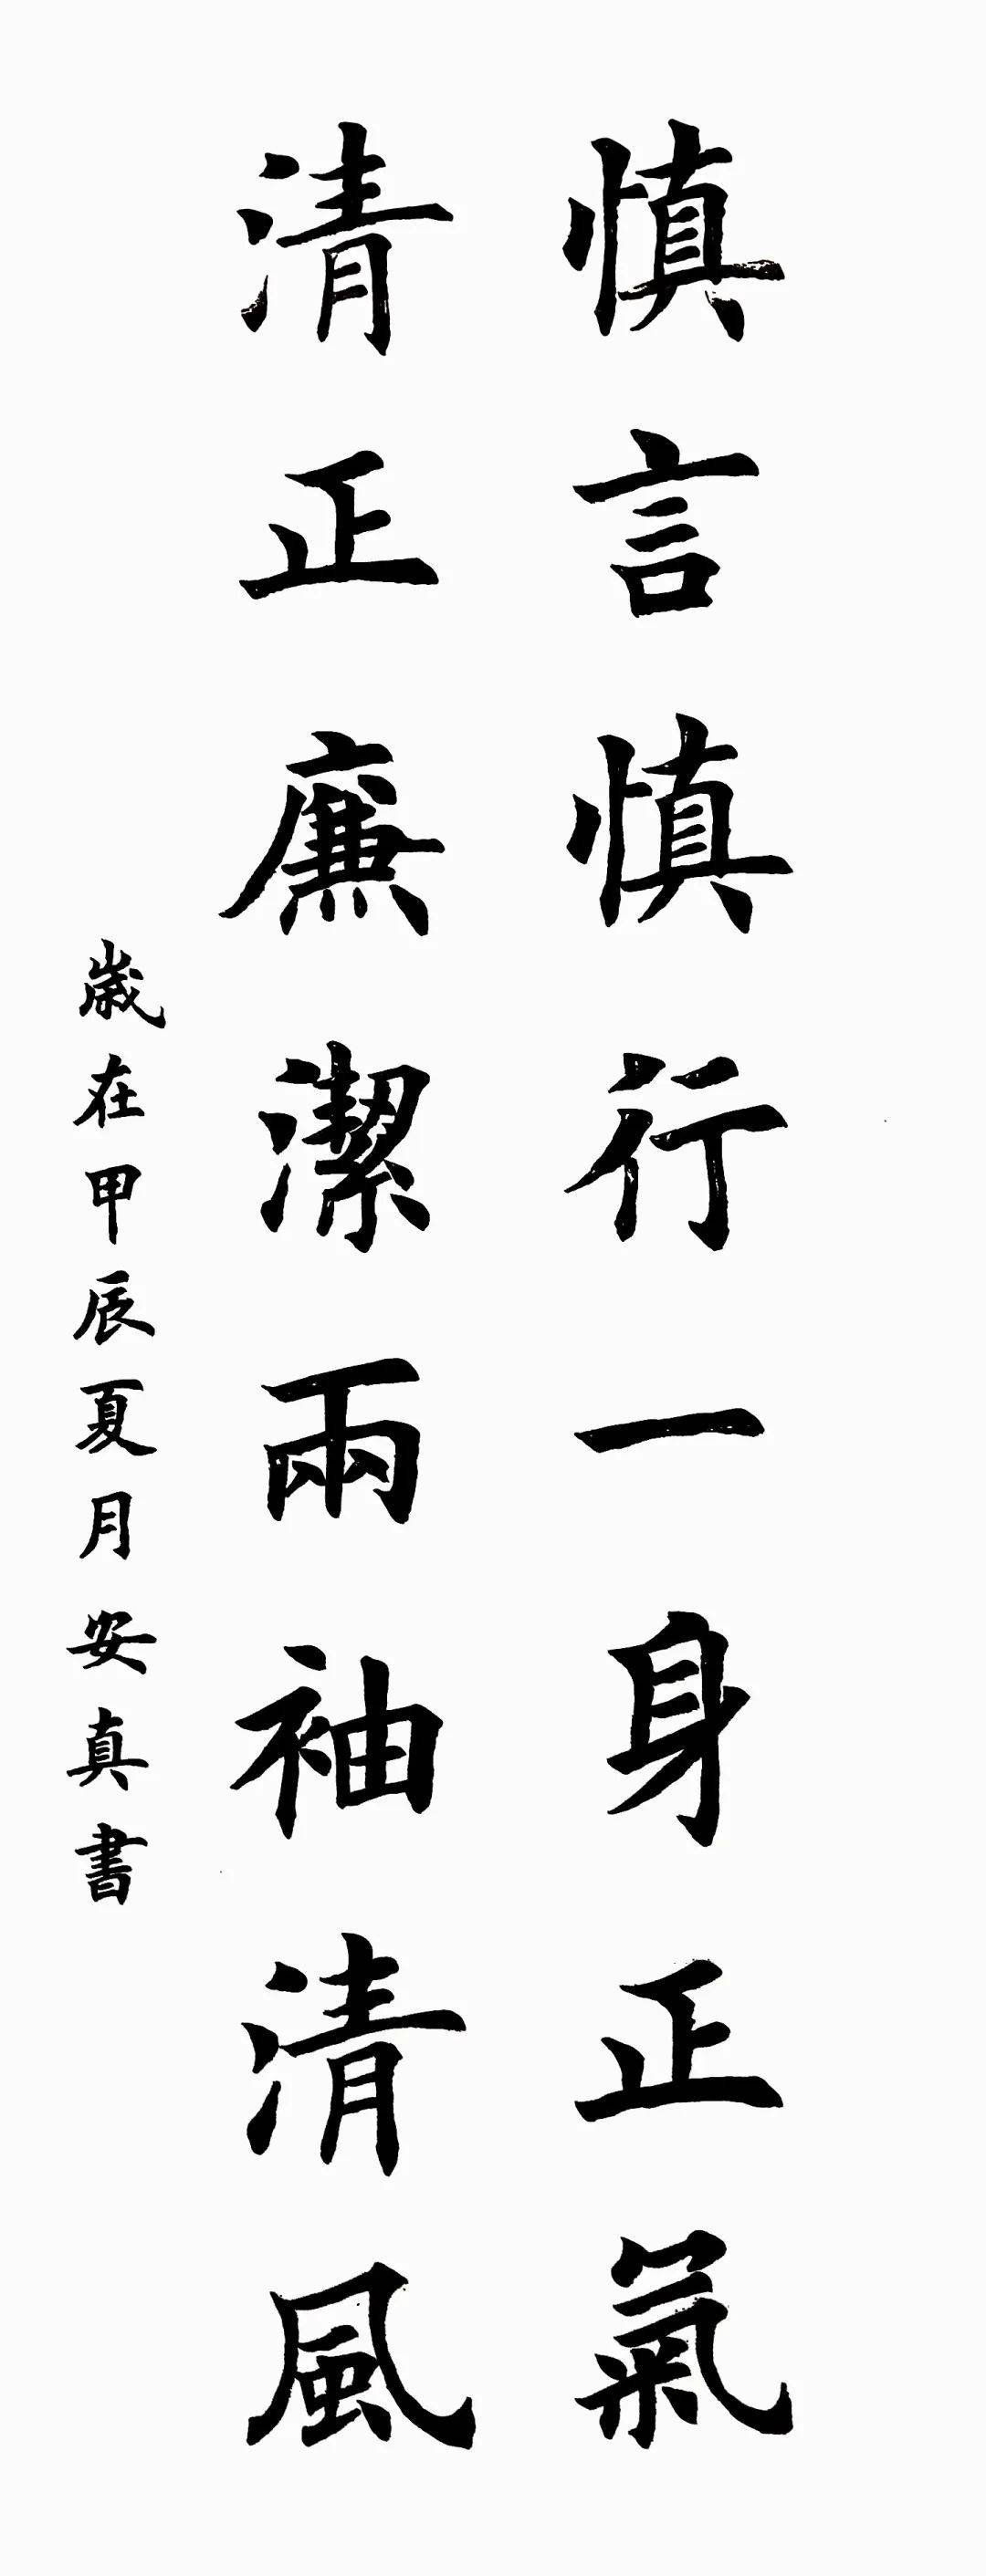 慎言慎行一身正氣
清正廉潔兩袖清風
歲在甲辰夏月安真書